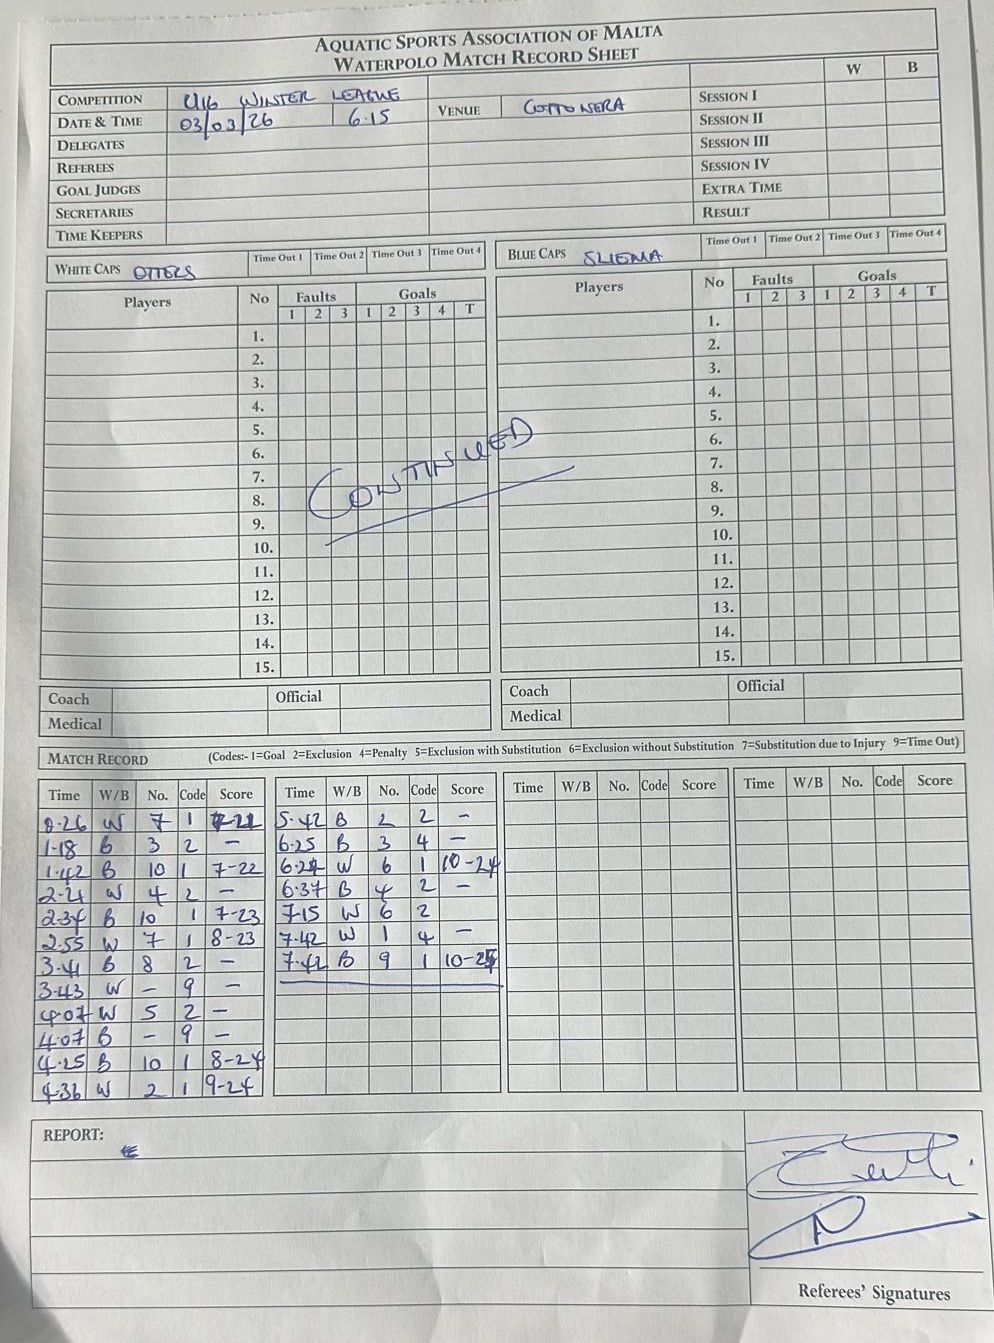 AQUATIC SPORTS ASSOCIATION OF MALTA
WATERPOLO MATCH RECORD SHEET
W B
COMPETITION U16 WINTER LEAGUE
DATE & TIME 03/03/26 6.15 VENUE COTTONERA
DELEGATES
REFEREES
GOAL JUDGES
SECRETARIES
TIME KEEPERS
SESSION I
SESSION II
SESSION III
SESSION IV
EXTRA TIME
RESULT
WHITE CAPS OTTERS Time Out 1 Time Out 2 Time Out 3 Time Out 4
BLUE CAPS SLIEMA Time Out 1 Time Out 2 Time Out 3 Time Out 4
Players No Faults Goals
1 2 3 1 2 3 4 T
1.
2.
3.
4.
5.
6.
7.
8.
9.
10.
11.
12.
13.
14.
15.
Players No Faults Goals
1 2 3 1 2 3 4 T
1.
2.
3.
4.
5.
6.
7.
8.
9.
10.
11.
12.
13.
14.
15.
CONTINUED
Coach Official
Medical
Coach Official
Medical
MATCH RECORD (Codes:- 1=Goal 2=Exclusion 4=Penalty 5=Exclusion with Substitution 6=Exclusion without Substitution 7=Substitution due to Injury 9=Time Out)
Time W/B No. Code Score
W 7 1
1.18 B 3 2 -
1.42 B 10 1 7-22
2.21 W 4 2 -
2.34 B 10 1 7-23
2.55 W 7 1 8-23
3.41 B 8 2 -
3.43 W - 9 -
4.07 W 5 2 -
4.07 B - 9 -
4.25 B 10 1 8-24
4.36 W 2 1 9-24
Time W/B No. Code Score
5.42 B 2 2 -
6.25 B 3 4 -
W 6 1 10-24
6.37 B 4 2 -
7.15 W 6 2
7.42 W 1 4 -
7.42 B 9 1 10-25
Time W/B No. Code Score
Time W/B No. Code Score
REPORT:
Referees' Signatures